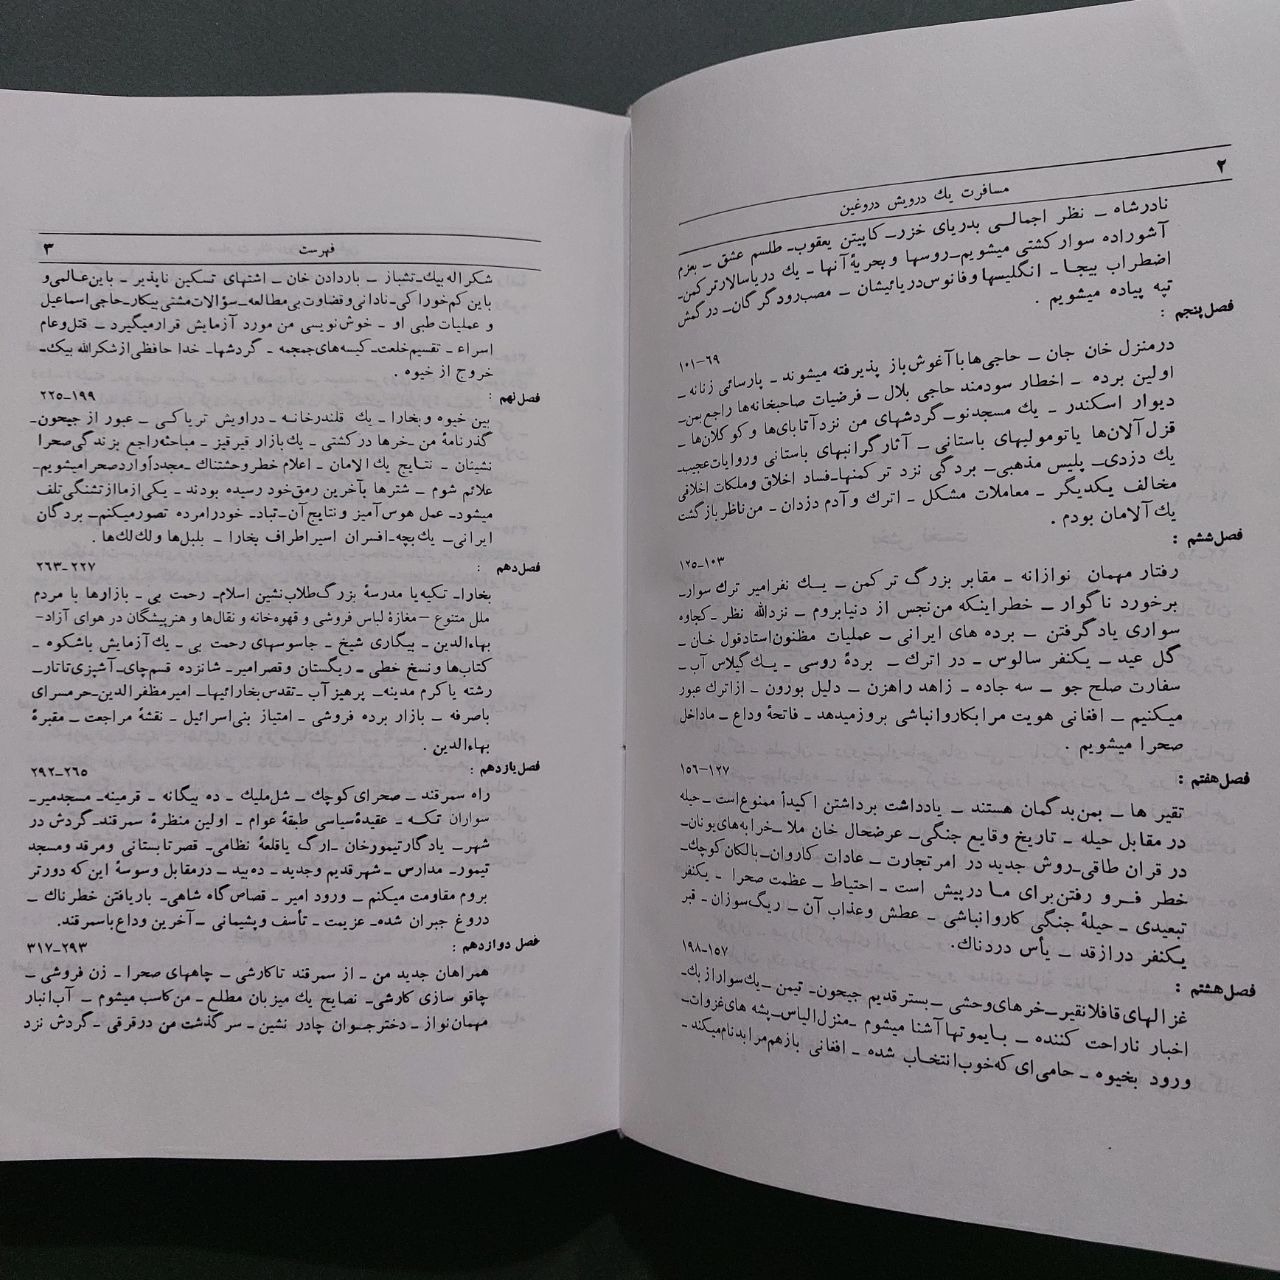 ۲
مسافرت یك درویش دروغین
نادرشاه ــ نظر اجمالــی بدریای خزر ــ کاپیتن یعقوب ــ طلسم عشق ــ بعزم
آشوراده سوار کشتی میشویم ــ روسها و بحریهٔ آنها ــ یك دریاسالار ترکمن ــ
اضطراب بیجـا ــ انگلیسها و فانوس دریائیشان ــ مصب رود گرگان ــ در گمش
تپه پیاده میشویم .
فصل پنجم :
۶۹–۱۰۱
درمنزل خان جان ــ حاجی‌ها با آغوش باز پذیرفته میشوند ــ پارسائی زنانه ــ
اولین برده ــ اخطار سودمند حاجی بلال ــ فرضیات صاحبخانه‌ها راجع بمن ــ
دیوار اسکندر ــ یك مسجد نو ــ گردشهای من نزد آتابای‌ها و کوکلان‌ها ــ
قزل آلان‌ها یا تومولیهای باستانی ــ آثار گرانبهای باستانی و روایات عجیب ــ
یك دزدی ــ پلیس مذهبی ــ بردگی نزد ترکمنها ــ فساد اخلاق و ملکات اخلاقی
مخالف یکدیگر ــ معاملات مشکل ــ اترك و آدم دزدان ــ من ناظر بازگشت
یك آلامان بودم .
فصل ششم :
۱۰۳–۱۲۵
رفتار مهمان نوازانه ــ مقابر بزرگ ترکمن ــ یــك نفر امیر ترك سوار ــ
برخورد ناگوار ــ خطر اینکه من نجس از دنیا بروم ــ نزدالله نظر ــ کجاوه
سواری یاد گرفتن ــ برده های ایرانی ــ عملیات مظنون استاد قول خان ــ
گل عید ــ یکنفر سالوس ــ در اترك ــ بردهٔ روسی ــ یــك گیلاس آب ــ
سفارت صلح جو ــ سه جاده ــ زاهد راهزن ــ دلیل بورون ــ از اترك عبور
میکنیم ــ افغانی هویت مرا بکاروانباشی بروز میدهد ــ فاتحهٔ وداع ــ ما داخل
صحرا میشویم .
فصل هفتم :
۱۲۷–۱۵۶
تقیر ها ــ بمن بدگمان هستند ــ یادداشت برداشتن اکیداً ممنوع است ــ حیله
در مقابل حیله ــ تاریخ وقایع جنگی ــ عرضحال خان ملا ــ خرابه‌های یونان ــ
در قران طاقی ــ روش جدید در امر تجارت ــ عادات کاروان ــ بالکان کوچك ــ
خطر فــرو رفتن برای ما در پیش است ــ احتیاط ــ عظمت صحرا ــ یکنفر
تبعیدی ــ حیلهٔ جنگی کاروانباشی ــ عطش و عذاب آن ــ ریگ سوزان ــ قبر
یکنفر دراز قد ــ یأس دردناك.
فصل هشتم :
۱۵۷–۱۹۸
غزالهای قافلانقیر ــ خرهای وحشی ــ بستر قدیم جیحون ــ تیمن ــ یك سوار از بك ــ
اخبار ناراحت کننده ــ با یموتها آشنا میشوم ــ منزل الیاس ــ پشه های غزوات ــ
ورود بخیوه ــ حامی‌ای که خوب انتخاب شده ــ افغانی بازهم مرا بدنام میکند ــ
فهرست
۳
شکراله بیك ــ تشباز ــ بار دادن خان ــ اشتهای تسکین ناپذیر ــ با این عالمی و
با این کم خوراکی ــ نادانی و قضاوت بی مطالعه ــ سؤالات مشتی بیکار ــ حاجی اسماعیل
و عملیات طبی او ــ خوش نویسی من مورد آزمایش قرار میگیرد ــ قتل و عام
اسراء ــ تقسیم خلعت ــ کیسه های جمجمه ــ گردشها ــ خدا حافظی از شکرالله بیك ــ
خروج از خیوه .
فصل نهم :
۱۹۹–۲۲۵
بین خیوه و بخارا ــ یك قلندرخانــه ــ دراویش تریاکــی ــ عبور از جیحون ــ
گذرنامهٔ من ــ خرها در کشتی ــ یك بازار قیرقیز ــ مباحثه راجع بزندگی صحرا
نشینان ــ نتایج یك الامان ــ اعلام خطر وحشتناك ــ مجدداً وارد صحرا میشویم ــ
علائم شوم ــ شترها بآخرین رمق خود رسیده بودند ــ یکی از ما از تشنگی تلف
میشود ــ عمل هوس آمیز و نتایج آن ــ تباد ــ خود را مرده تصور میکنم ــ بردگان
ایرانی ــ یك بچه ــ افسران اسیر اطراف بخارا ــ بلبل‌ها و لك لك‌ها .
فصل دهم :
۲۲۷–۲۶۳
بخارا ــ تکیه یا مدرسهٔ بزرگ طلاب نشین اسلام ــ رحمت بی ــ بازارها با مردم
ملل متنوع – مغازهٔ لباس فروشی و قهوه خانه و نقال‌ها و هنرپیشگان در هوای آزاد –
بهاءالدین ــ بیگاری شیخ ــ جاسوسهای رحمت بی ــ یك آزمایش باشکوه ــ
کتاب‌ها و نسخ خطی ــ ریگستان و قصر امیر ــ شانزده قسم چای ــ آشپزی تاتار ــ
رشته یا کرم مدینه ــ پرهیز آب ــ تقدس بخارائیها ــ امیر مظفرالدین ــ حرمسرای
باصرفه ــ بازار برده فروشی ــ امتیاز بنی اسرائیل ــ نقشهٔ مراجعت ــ مقبرهٔ
بهاءالدین .
فصل یازدهم :
۲۶۵–۲۹۲
راه سمرقند ــ صحرای کوچك ــ شل ملیك ــ ده بیگانه ــ قرمینه ــ مسجد میر ــ
سواران تنکــه ــ عقیدهٔ سیاسی طبقهٔ عوام ــ اولین منظرهٔ سمرقند ــ گردش در
شهر ــ یادگار تیمورخان ــ ارگ یا قلعهٔ نظامی ــ قصر تابستانی و مرقد و مسجد
تیمور ــ مدارس ــ شهر قدیم و جدید ــ ده بید ــ در مقابل وسوسهٔ این که دورتر
بروم مقاومت میکنم ــ ورود امیر ــ قصاص گاه شاهی ــ بار یافتن خطرناك ــ
دروغ جبران شده ــ عزیمت ــ تأسف و پشیمانی ــ آخرین وداع با سمرقند.
فصل دوازدهم :
۲۹۳–۳۱۷
همراهان جدید من ــ از سمرقند تا کارشی ــ چاههای صحرا ــ زن فروشی ــ
چاقو سازی کارشی ــ نصایح یك میزبان مطلع ــ من کاسب میشوم ــ آب انبار
مهمان نواز ــ دختر جــوان چادر نشین ــ سرگذشت من در قرقی ــ گردش نزد